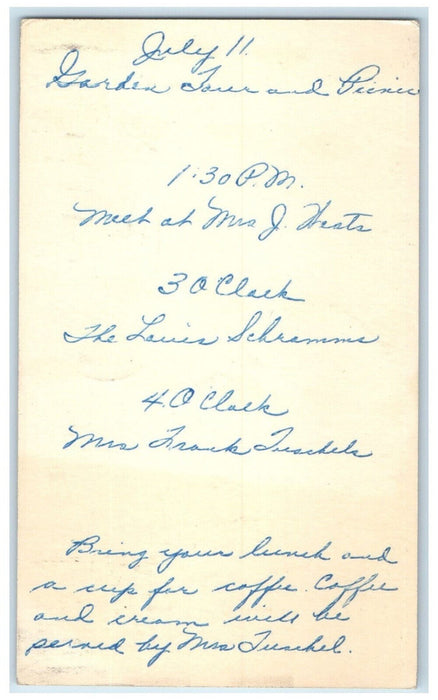 July 11.
Garden Tour and Picnic
1:30 P.M.
Meet at Mrs J.
3 O Clock
The Louis Schramms
4. O Clock
Mrs Frank Tuschels
Bring your lunch and
a cup for coffee. Coffee
and cream will be
served by Mrs Tuschel.